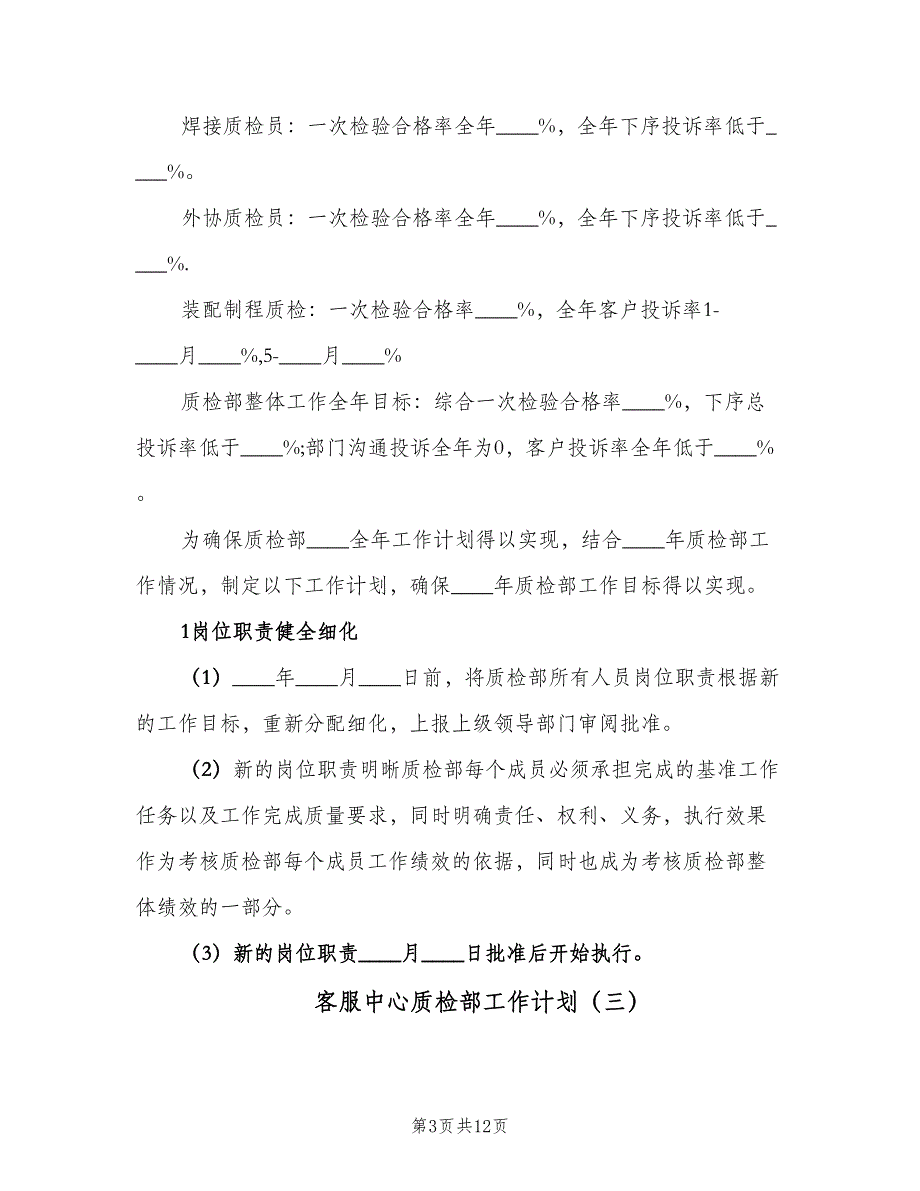 焊接质检员：一次检验合格率全年____%，全年下序投诉率低于_
___%。
外协质检员：一次检验合格率全年____%，全年下序投诉率低于_
___%.
装配制程质检：一次检验合格率____%，全年客户投诉率1-
____月____%,5-____月____%
质检部整体工作全年目标：综合一次检验合格率____%，下序总
投诉率低于____%;部门沟通投诉全年为0，客户投诉率全年低于____%
。
为确保质检部____全年工作计划得以实现，结合____年质检部工
作情况，制定以下工作计划，确保____年质检部工作目标得以实现。
1岗位职责健全细化
（1）____年____月____日前，将质检部所有人员岗位职责根据新
的工作目标，重新分配细化，上报上级领导部门审阅批准。
（2）新的岗位职责明晰质检部每个成员必须承担完成的基准工作
任务以及工作完成质量要求，同时明确责任、权利、义务，执行效果
作为考核质检部每个成员工作绩效的依据，同时也成为考核质检部整
体绩效的一部分。
（3）新的岗位职责____月____日批准后开始执行。
客服中心质检部工作计划（三）
第3页共12页